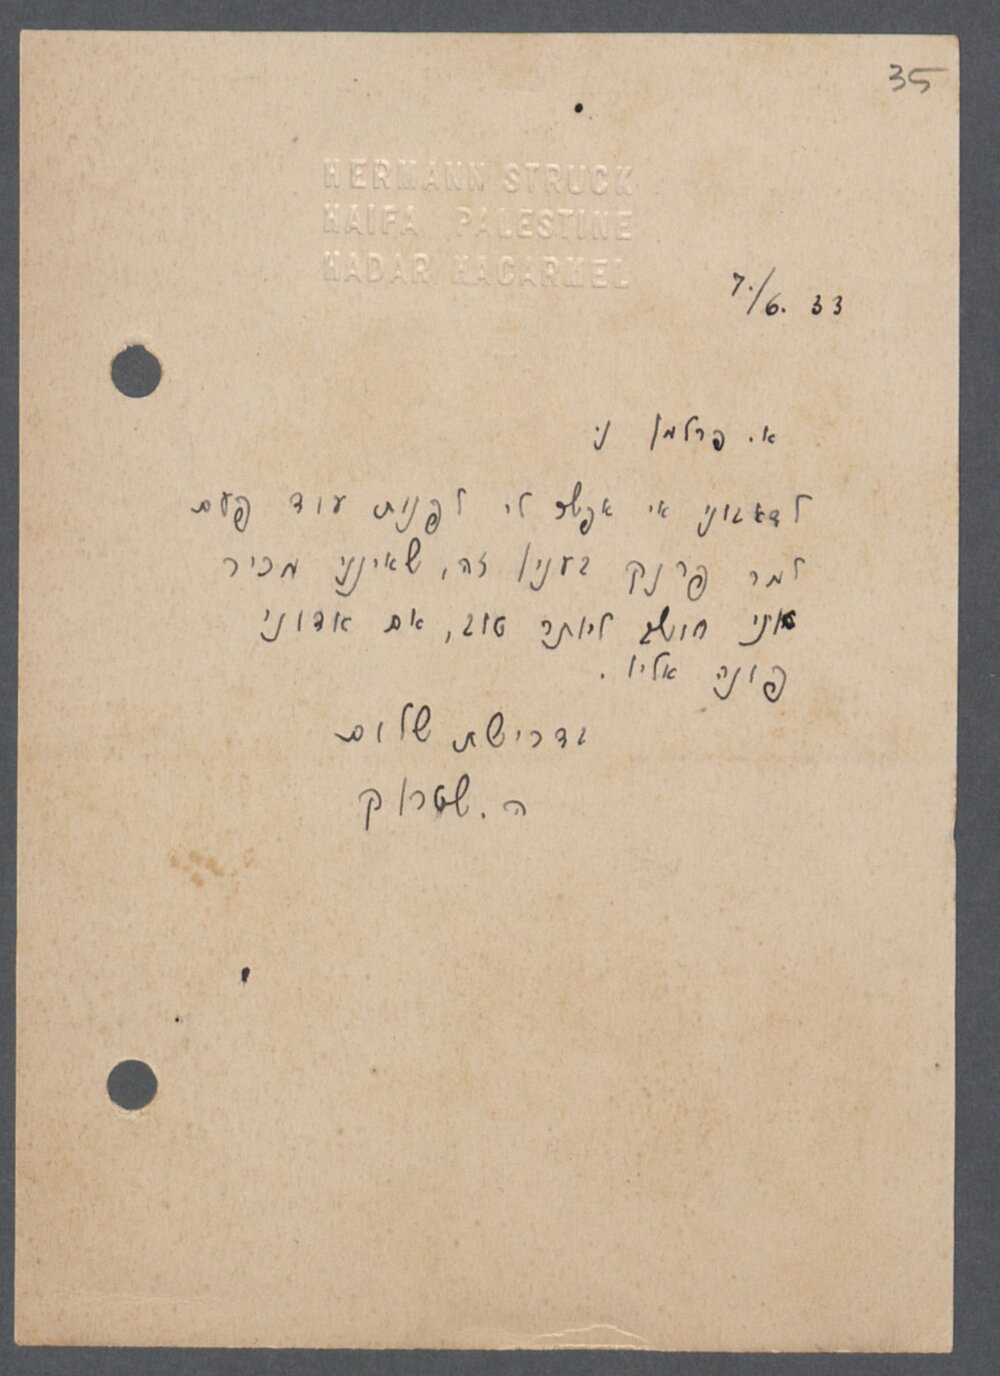 35
HERMANN STRUCK
HAIFA PALESTINE
HADAR HACARMEL
7./6. 33
א. פרלמן ני
לדאבוני אי אפשר לי לפנות עוד פעם
למר פרנק בענין זה, שאינני מכיר
אני חושב ליותר טוב, אם אדוני
פונה אליו.
בדרישת שלום
ה. שטרוק